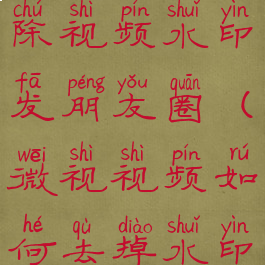 chú shì pín shuǐ yìn
除视频水印
fā péng yǒu quān
发朋友圈(
wēi shì shì pín rú
微视视频如
hé qù diào shuǐ yìn
何去掉水印